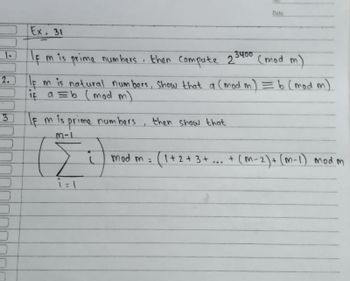 Date
Ex. 31
1. If m is prime numbers, then compute 2^3400 (mod m)
2. If m is natural numbers, show that a (mod m) ≡ b (mod m)
if a ≡ b (mod m)
3 If m is prime numbers, then show that
(∑_{i=1}^{m-1} i) mod m = (1+2+3+ ... + (m-2)+(m-1) mod m